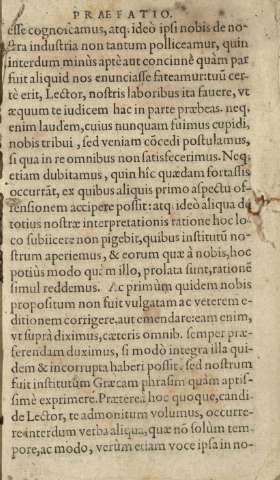 PRAEFATIO.
esse cognoscamus, atq. ideò ipsi nobis de no-
stra industria non tantum polliceamur, quin
interdum minùs aptè aut concinnè quàm par
fuit aliquid nos enunciasse fateamur: tuū cer-
tè erit, Lector, nostris laboribus ita fauere, vt
æquum te iudicem hac in parte præbeas. neq.
enim laudem, cuius nunquam fuimus cupidi,
nobis tribui, sed veniam cōcedi postulamus,
si qua in re omnibus non satisfecerimus. Neq;
etiam dubitamus, quin hîc quædam fortassis
occurrāt, ex quibus aliquis primo aspectu of-
fensionem accipere possit: atq. ideò aliqua de
totius nostræ interpretationis ratione hoc lo-
co subiicere non pigebit, quibus institutū no-
strum aperiemus, & eorum quæ à nobis, hoc
potiùs modo quàm illo, prolata sunt, rationē
simul reddemus. Ac primùm quidem nobis
propositum non fuit vulgatam ac veterem e-
ditionem corrigere, aut emendare: eam enim,
vt suprà diximus, cæteris omnib. semper præ-
ferendam duximus, si modò integra illa qui-
dem & incorrupta haberi possit. sed nostrum
fuit institutum Græcam phrasim quàm aptis-
simè exprimere. Præterea hoc quoque, candi-
de Lector, te admonitum volumus, occurre-
re interdum verba aliqua, quæ nō solùm tem-
pore, ac modo, verùm etiam voce ipsa in no-